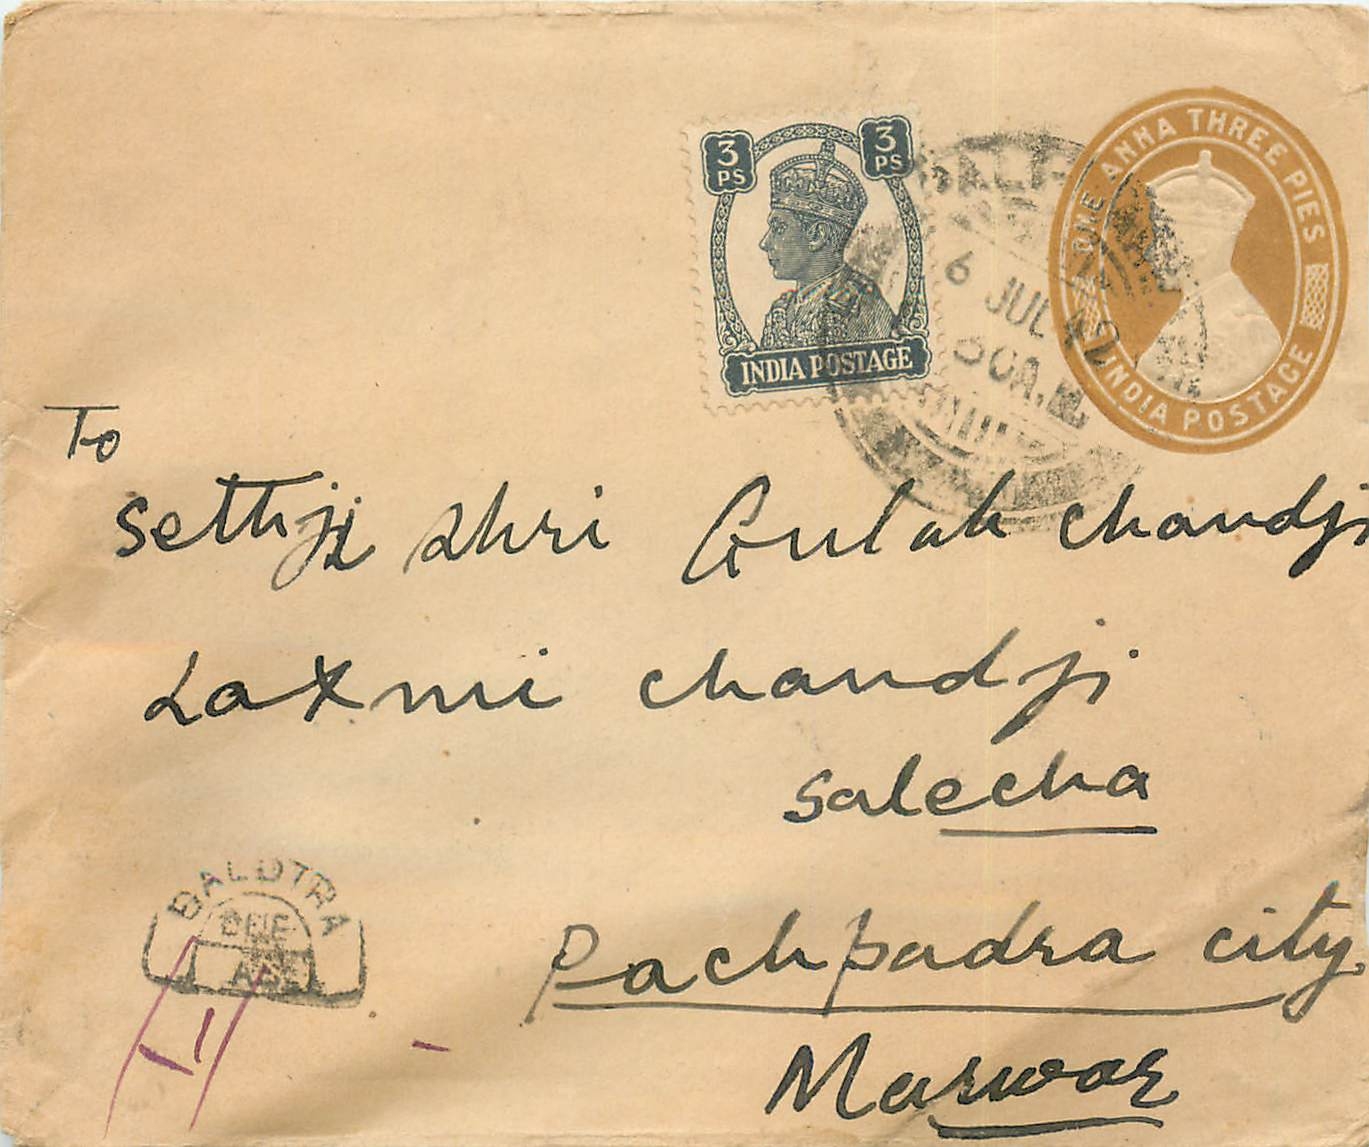 3 PS 3 PS
INDIA POSTAGE
ONE ANNA THREE PIES
INDIA POSTAGE
6 JUL 42
To
Sethji Shri Gulab Chandji
Laxmi Chandji
Salecha
Pachpadra City.
Marwar
BALOTRA